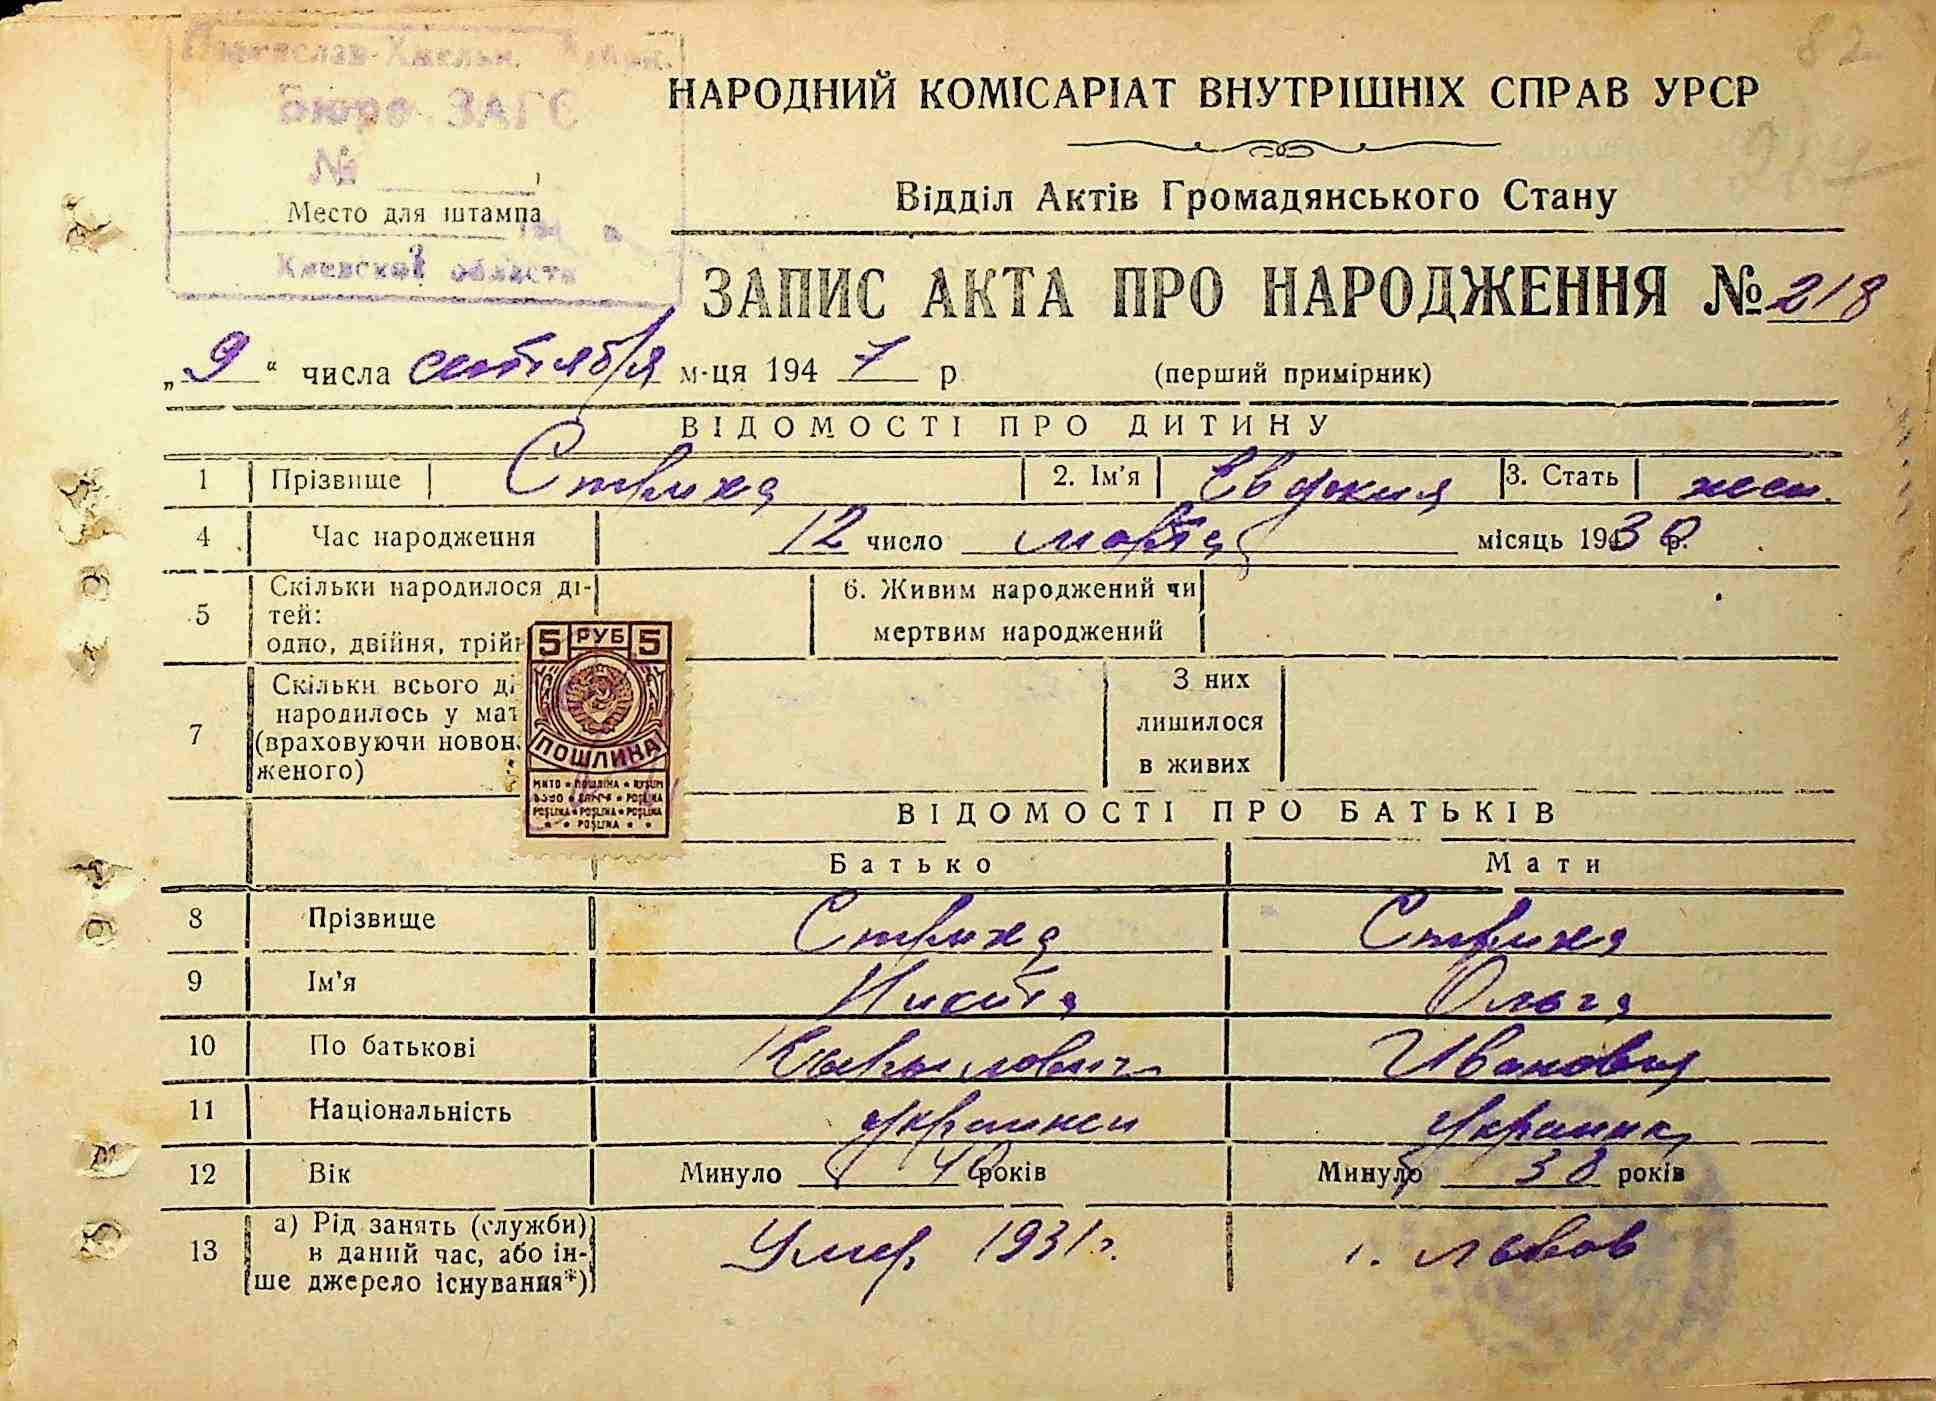 82
Переяслав-Хмельн.
Бюро ЗАГС
№
Место для штампа
Киевской области
НАРОДНИЙ КОМІСАРІАТ ВНУТРІШНІХ СПРАВ УРСР
Відділ Актів Громадянського Стану
ЗАПИС АКТА ПРО НАРОДЖЕННЯ № 218
„9“ числа сентября м-ця 1947 р (перший примірник)
ВІДОМОСТІ ПРО ДИТИНУ
1 Прізвище Стриха 2. Ім'я Евдокия 3. Стать жен.
4 Час народження 12 число марта місяць 1930 р.
5 Скільки народилося ді-
тей:
одно, двійня, трійн
6. Живим народжений чи
мертвим народжений
7 Скільки всього ді
народилось у мат
(враховуючи новон.
женого)
З них
лишилося
в живих
5 РУБ 5
ПОШЛИНА
ВІДОМОСТІ ПРО БАТЬКІВ
Батько Мати
8 Прізвище Стриха Стриха
9 Ім'я Никита Ольга
10 По батькові Ивановна
11 Національність украинец украинка
12 Вік Минуло 40 років Минуло 38 років
13 а) Рід занять (служби)
в даний час, або ін-
ше джерело існування*)
Умер 1931 г. г. Львов